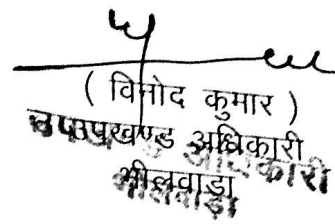 ( विनोद कुमार )
उपखण्ड अधिकारी
भीलवाड़ा